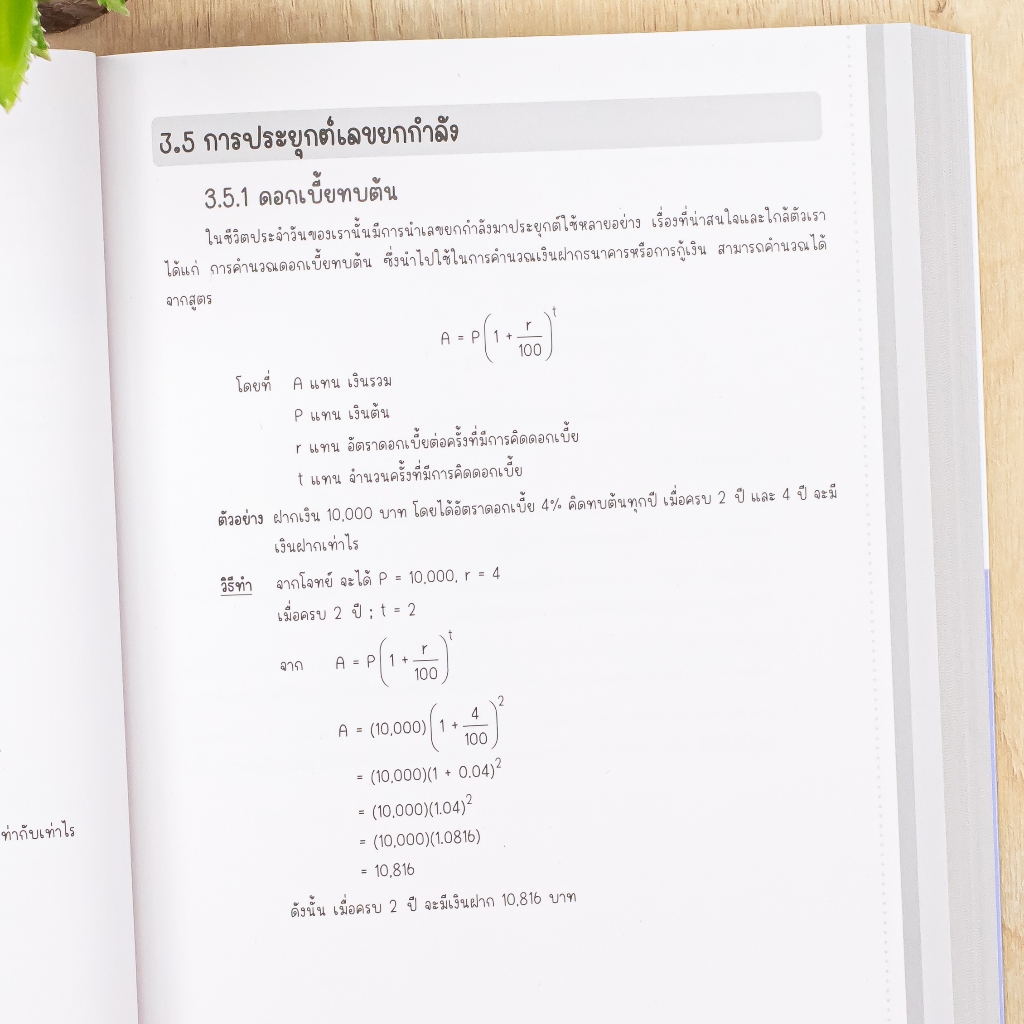 3.5 การประยุกต์เลขยกกำลัง
3.5.1 ดอกเบี้ยทบต้น
ในชีวิตประจำวันของเรานั้นมีการนำเลขยกกำลังมาประยุกต์ใช้หลายอย่าง เรื่องที่น่าสนใจและใกล้ตัวเรา
ได้แก่ การคำนวณดอกเบี้ยทบต้น ซึ่งนำไปใช้ในการคำนวณเงินฝากธนาคารหรือการกู้เงิน สามารถคำนวณได้
จากสูตร
A = P(1 + r/100)^t
โดยที่ A แทน เงินรวม
P แทน เงินต้น
r แทน อัตราดอกเบี้ยต่อครั้งที่มีการคิดดอกเบี้ย
t แทน จำนวนครั้งที่มีการคิดดอกเบี้ย
ตัวอย่าง ฝากเงิน 10,000 บาท โดยได้อัตราดอกเบี้ย 4% คิดทบต้นทุกปี เมื่อครบ 2 ปี และ 4 ปี จะมี
เงินฝากเท่าไร
วิธีทำ จากโจทย์ จะได้ P = 10,000, r = 4
เมื่อครบ 2 ปี ; t = 2
จาก A = P(1 + r/100)^t
A = (10,000)(1 + 4/100)^2
= (10,000)(1 + 0.04)^2
= (10,000)(1.04)^2
= (10,000)(1.0816)
= 10,816
ดังนั้น เมื่อครบ 2 ปี จะมีเงินฝาก 10,816 บาท
ท่ากับเท่าไร